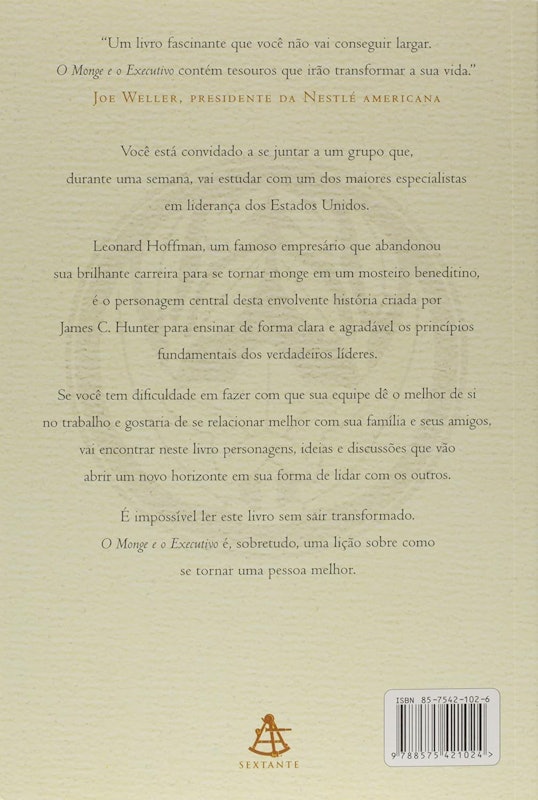 “Um livro fascinante que você não vai conseguir largar.
O Monge e o Executivo contém tesouros que irão transformar a sua vida.”
Joe Weller, presidente da Nestlé americana
Você está convidado a se juntar a um grupo que,
durante uma semana, vai estudar com um dos maiores especialistas
em liderança dos Estados Unidos.
Leonard Hoffman, um famoso empresário que abandonou
sua brilhante carreira para se tornar monge em um mosteiro beneditino,
é o personagem central desta envolvente história criada por
James C. Hunter para ensinar de forma clara e agradável os princípios
fundamentais dos verdadeiros líderes.
Se você tem dificuldade em fazer com que sua equipe dê o melhor de si
no trabalho e gostaria de se relacionar melhor com sua família e seus amigos,
vai encontrar neste livro personagens, ideias e discussões que vão
abrir um novo horizonte em sua forma de lidar com os outros.
É impossível ler este livro sem sair transformado.
O Monge e o Executivo é, sobretudo, uma lição sobre como
se tornar uma pessoa melhor.
ISBN 85-7542-102-6
9 788575 421024 >
SEXTANTE